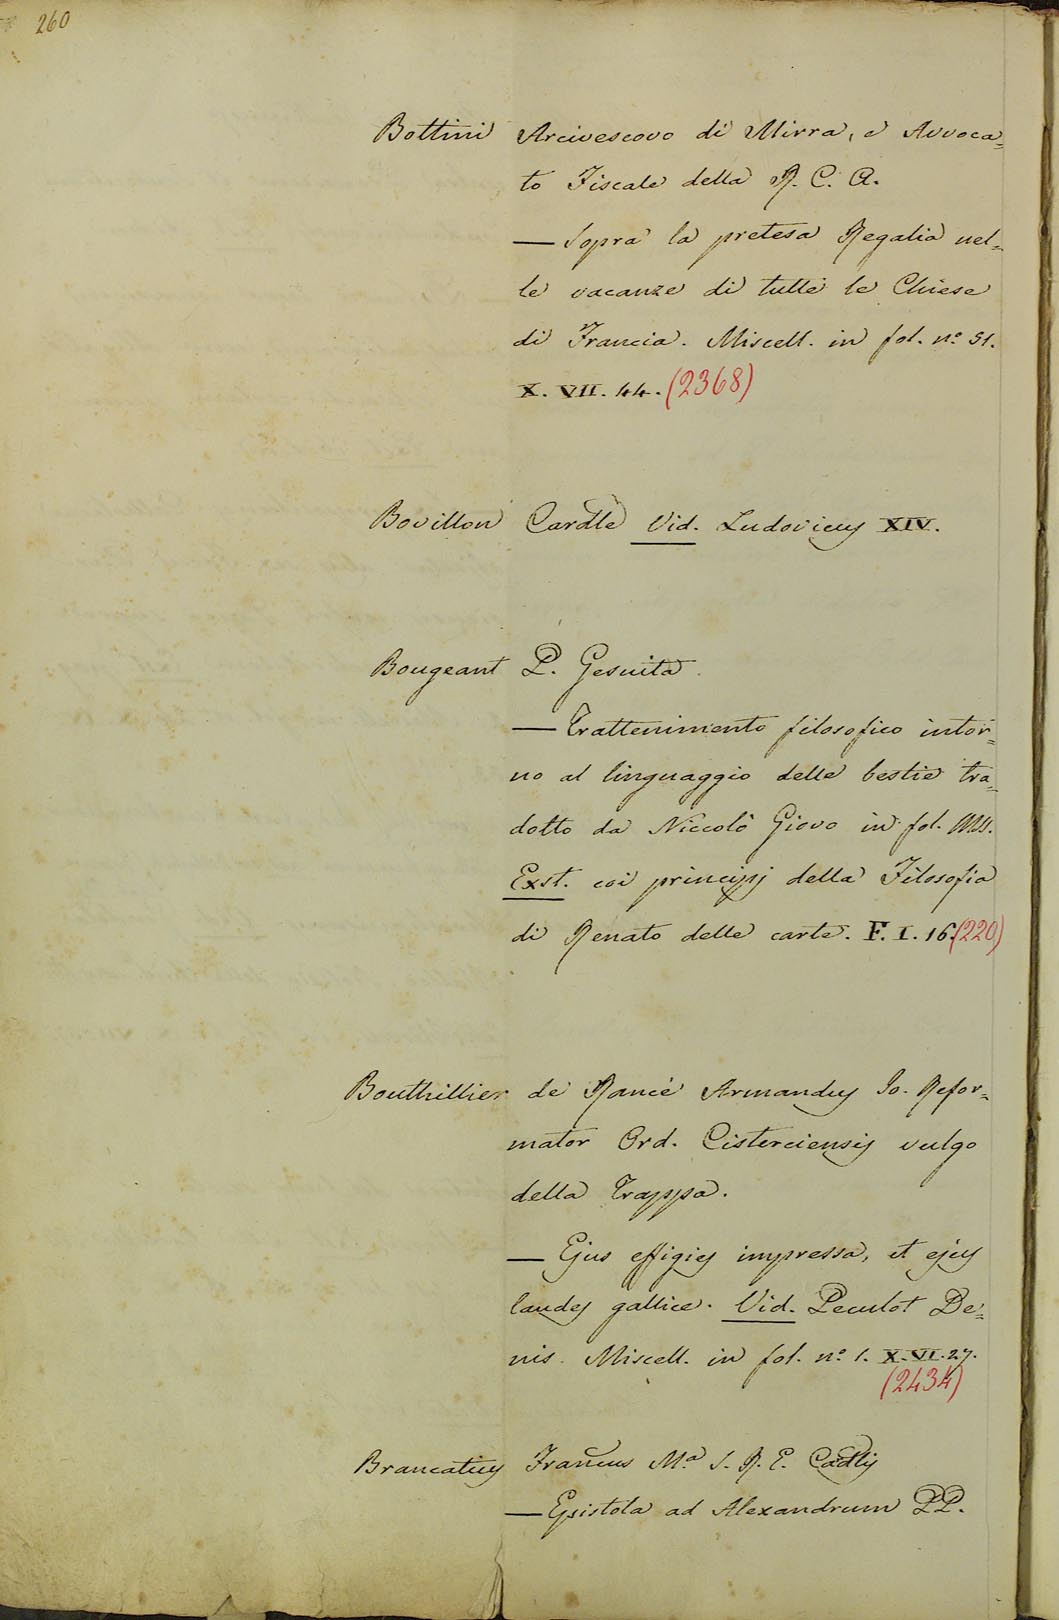 260
Bottini Arcivescovo di Mirra, e Avvoca=
to Fiscale della R. C. A.
— Sopra la pretesa Regalia nel=
le vacanze di tutte le Chiese
di Francia. Miscell. in fol. nº 51.
X. VII. 44. (2368)
Bovillon Cardle Vid. Ludovicus XIV.
Bougeant P. Gesuita.
— Trattenimento filosofico intor=
no al linguaggio delle bestie tra=
dotto da Niccolò Giovo in fol. MSS.
Exst. coi principj della Filosofia
di Renato delle carte. F. I. 16. (220)
Bouthillier de Rancè Armandus Io. Refor=
mator Ord. Cisterciensis vulgo
della Trappa.
— Ejus effigies impressa, et ejus
laudes gallice. Vid. Peculot De=
nis. Miscell. in fol. nº 1. X. VI. 27.
(2434)
Brancatius Francus Mª S. R. E. Cardlis
— Epistola ad Alexandrum PP.